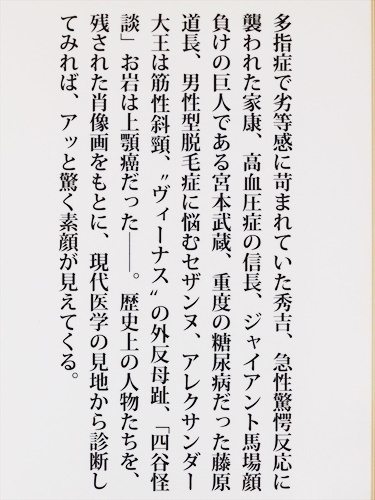 多指症で劣等感に苛まれていた秀吉、急性驚愕反応に
襲われた家康、高血圧症の信長、ジャイアント馬場顔
負けの巨人である宮本武蔵、重度の糖尿病だった藤原
道長、男性型脱毛症に悩むセザンヌ、アレクサンダー
大王は筋性斜頸、〝ヴィーナス〟の外反母趾、「四谷怪
談」お岩は上顎癌だった――。歴史上の人物たちを、
残された肖像画をもとに、現代医学の見地から診断し
てみれば、アッと驚く素顔が見えてくる。